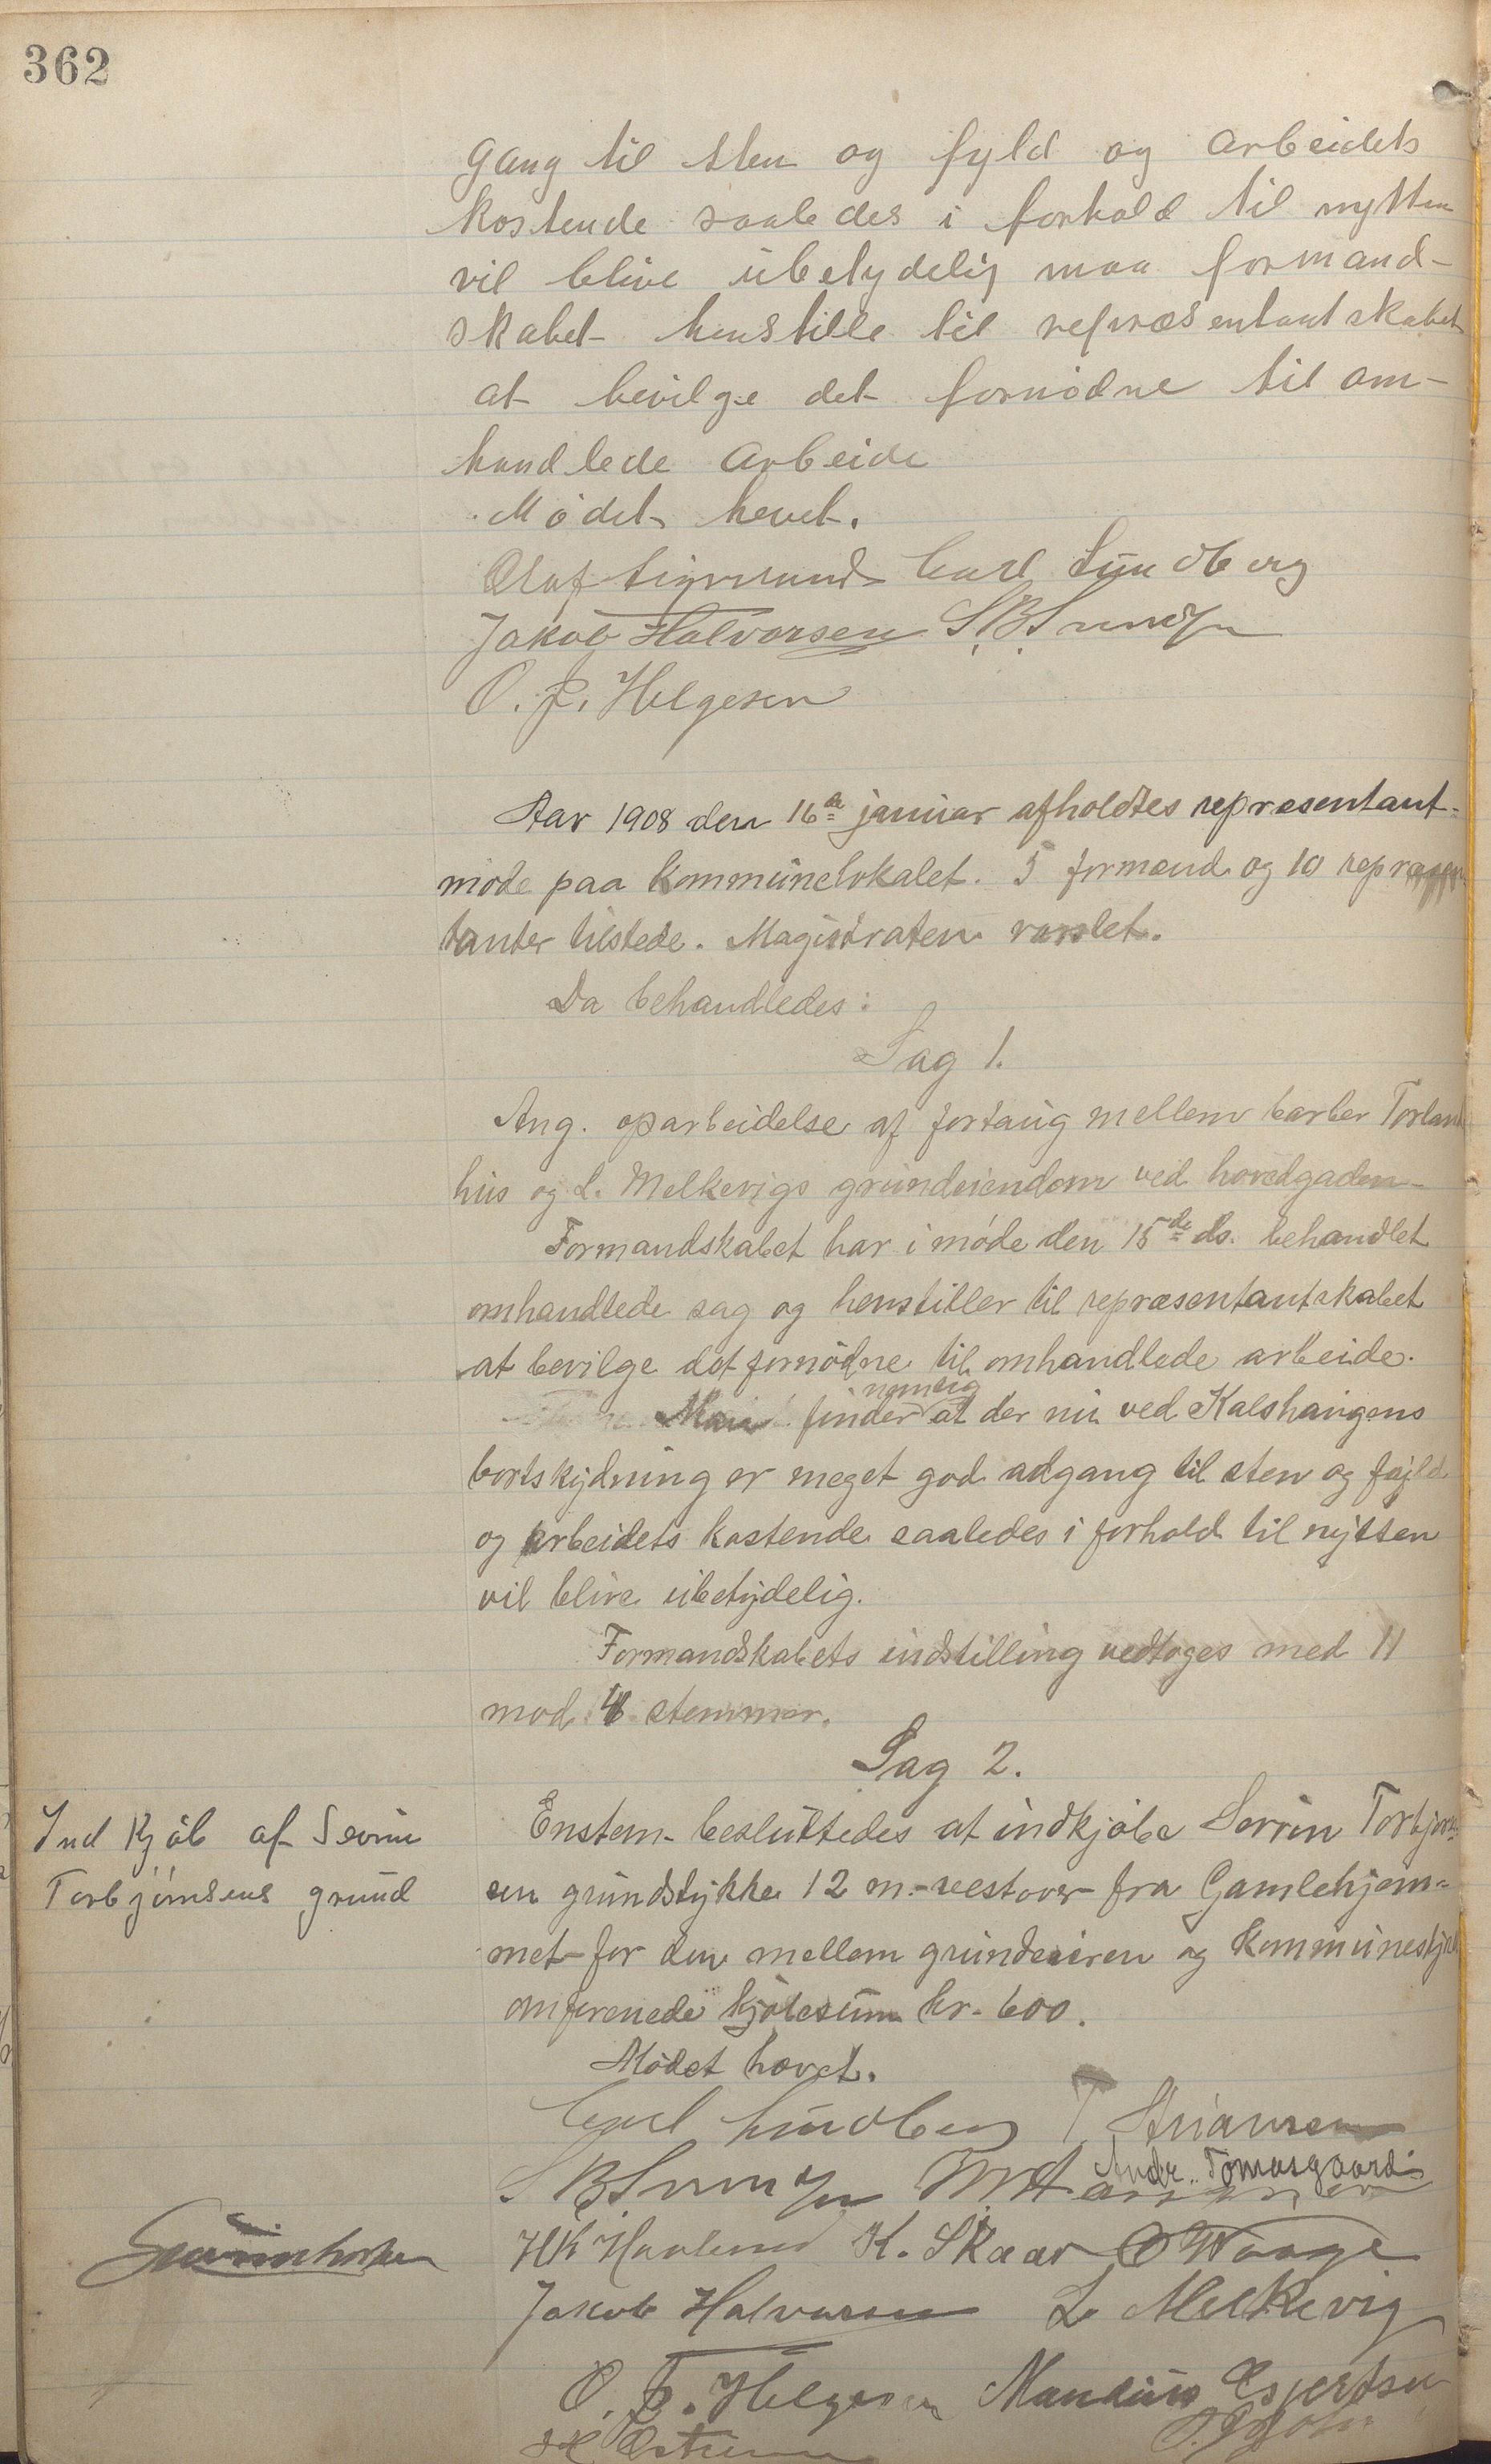 362
gang til sten og fyld og arbeidets
kostende saaledes i forhold til nytten
vil blive ubetydelig maa formand-
skabet henstille til repræsentantskabet
at bevilge det fornødne til om-
handlede arbeide
Mødet hevet.
Olaf Sigmund Carl Lundberg
Jakob Halvorsen S. B.
O. J. Helgesen
Aar 1908 den 16de januar afholdtes repræsentant-
møde paa kommunelokalet. 5 formænd og 10 repræsen
tanter tilstede. Magistraten varslet.
Da behandledes:
Sag 1.
Ang. oparbeidelse af fortaug mellem barber Torlands
hus og L. Melkevigs grundeiendom ved hovedgaden.
Formandskabet har i møde den 15de ds. behandlet
omhandlede sag og henstiller til repræsentantskabet
at bevilge det fornødne til omhandlede arbeide.
Man finder nemlig at der nu ved Kalshaugens
bortskydning er meget god adgang til sten og fyld
og arbeidets kostende saaledes i forhold til nytten
vil blive ubetydelig.
Formandskabets indstilling vedtoges med 11
mod 4 stemmer.
Sag 2.
Ind kjøb af Sevrin
Torbjørnsens grund
Enstem. besluttedes at indkjøbe Sevrin Torbjørn-
sen grundstykke 12 m. vestover fra Gamlehjem-
met for den mellem grundeieren og kommunestyret
omforenede kjøbesum kr. 600.
Mødet hævet.
Carl Lundberg T. Stiansen
S B Andr. Tomasgaard
H K Havland K. Skaar O Waage
Jakob Halvorsen L. Melkevig
O. J. Helgesen Mandius Espertsen